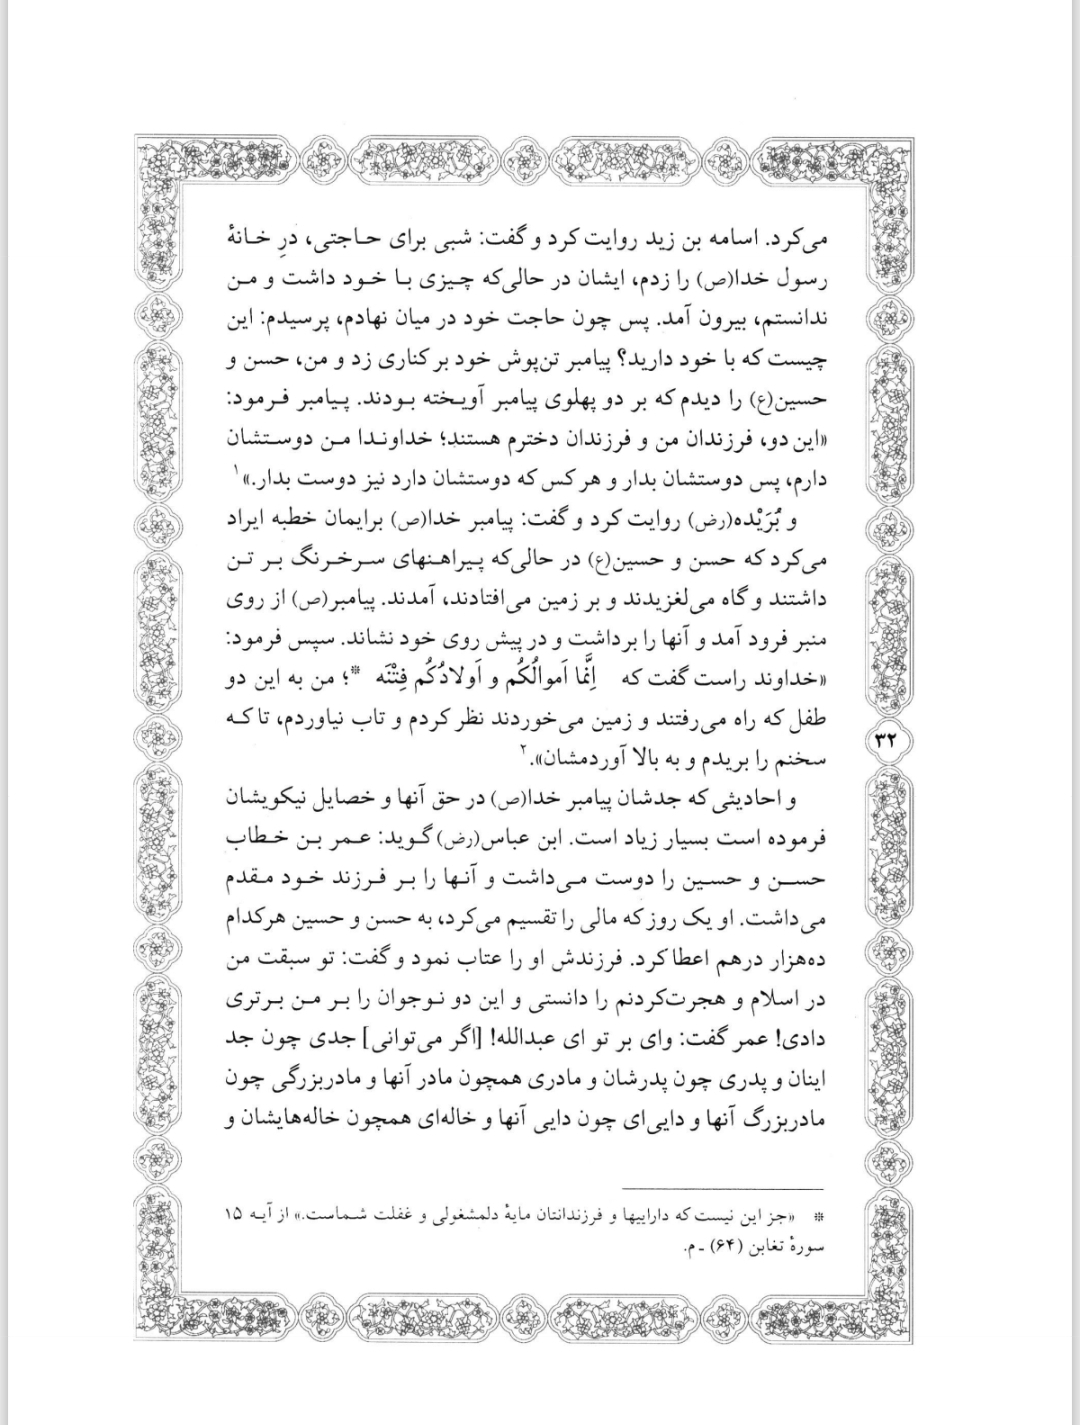 می‌کرد. اسامه بن زید روایت کرد و گفت: شبی برای حاجتی، درِ خانهٔ
رسول خدا(ص) را زدم، ایشان در حالی‌که چیزی با خود داشت و من
ندانستم، بیرون آمد. پس چون حاجت خود در میان نهادم، پرسیدم: این
چیست که با خود دارید؟ پیامبر تن‌پوش خود بر کناری زد و من، حسن و
حسین(ع) را دیدم که بر دو پهلوی پیامبر آویخته بودند. پیامبر فرمود:
«این دو، فرزندان من و فرزندان دخترم هستند؛ خداوندا من دوستشان
دارم، پس دوستشان بدار و هر کس که دوستشان دارد نیز دوست بدار.»۱
و بُرَیْده(رض) روایت کرد و گفت: پیامبر خدا(ص) برایمان خطبه ایراد
می‌کرد که حسن و حسین(ع) در حالی‌که پیراهنهای سرخرنگ بر تن
داشتند و گاه می‌لغزیدند و بر زمین می‌افتادند، آمدند. پیامبر(ص) از روی
منبر فرود آمد و آنها را برداشت و در پیش روی خود نشاند. سپس فرمود:
«خداوند راست گفت که اِنَّما اَموالُکُم و اَولادُکُم فِتْنَه *؛ من به این دو
طفل که راه می‌رفتند و زمین می‌خوردند نظر کردم و تاب نیاوردم، تا که
سخنم را بریدم و به بالا آوردمشان».۲
و احادیثی که جدشان پیامبر خدا(ص) در حق آنها و خصایل نیکویشان
فرموده است بسیار زیاد است. ابن عباس(رض) گوید: عمر بن خطاب
حسن و حسین را دوست می‌داشت و آنها را بر فرزند خود مقدم
می‌داشت. او یک روز که مالی را تقسیم می‌کرد، به حسن و حسین هرکدام
ده‌هزار درهم اعطا کرد. فرزندش او را عتاب نمود و گفت: تو سبقت من
در اسلام و هجرت‌کردنم را دانستی و این دو نوجوان را بر من برتری
دادی! عمر گفت: وای بر تو ای عبدالله! [اگر می‌توانی] جدی چون جد
اینان و پدری چون پدرشان و مادری همچون مادر آنها و مادربزرگی چون
مادربزرگ آنها و دایی‌ای چون دایی آنها و خاله‌ای همچون خاله‌هایشان و
* «جز این نیست که داراییها و فرزندانتان مایهٔ دلمشغولی و غفلت شماست.» از آیه ۱۵
سورهٔ تغابن (۶۴) ـ م.
۳۲